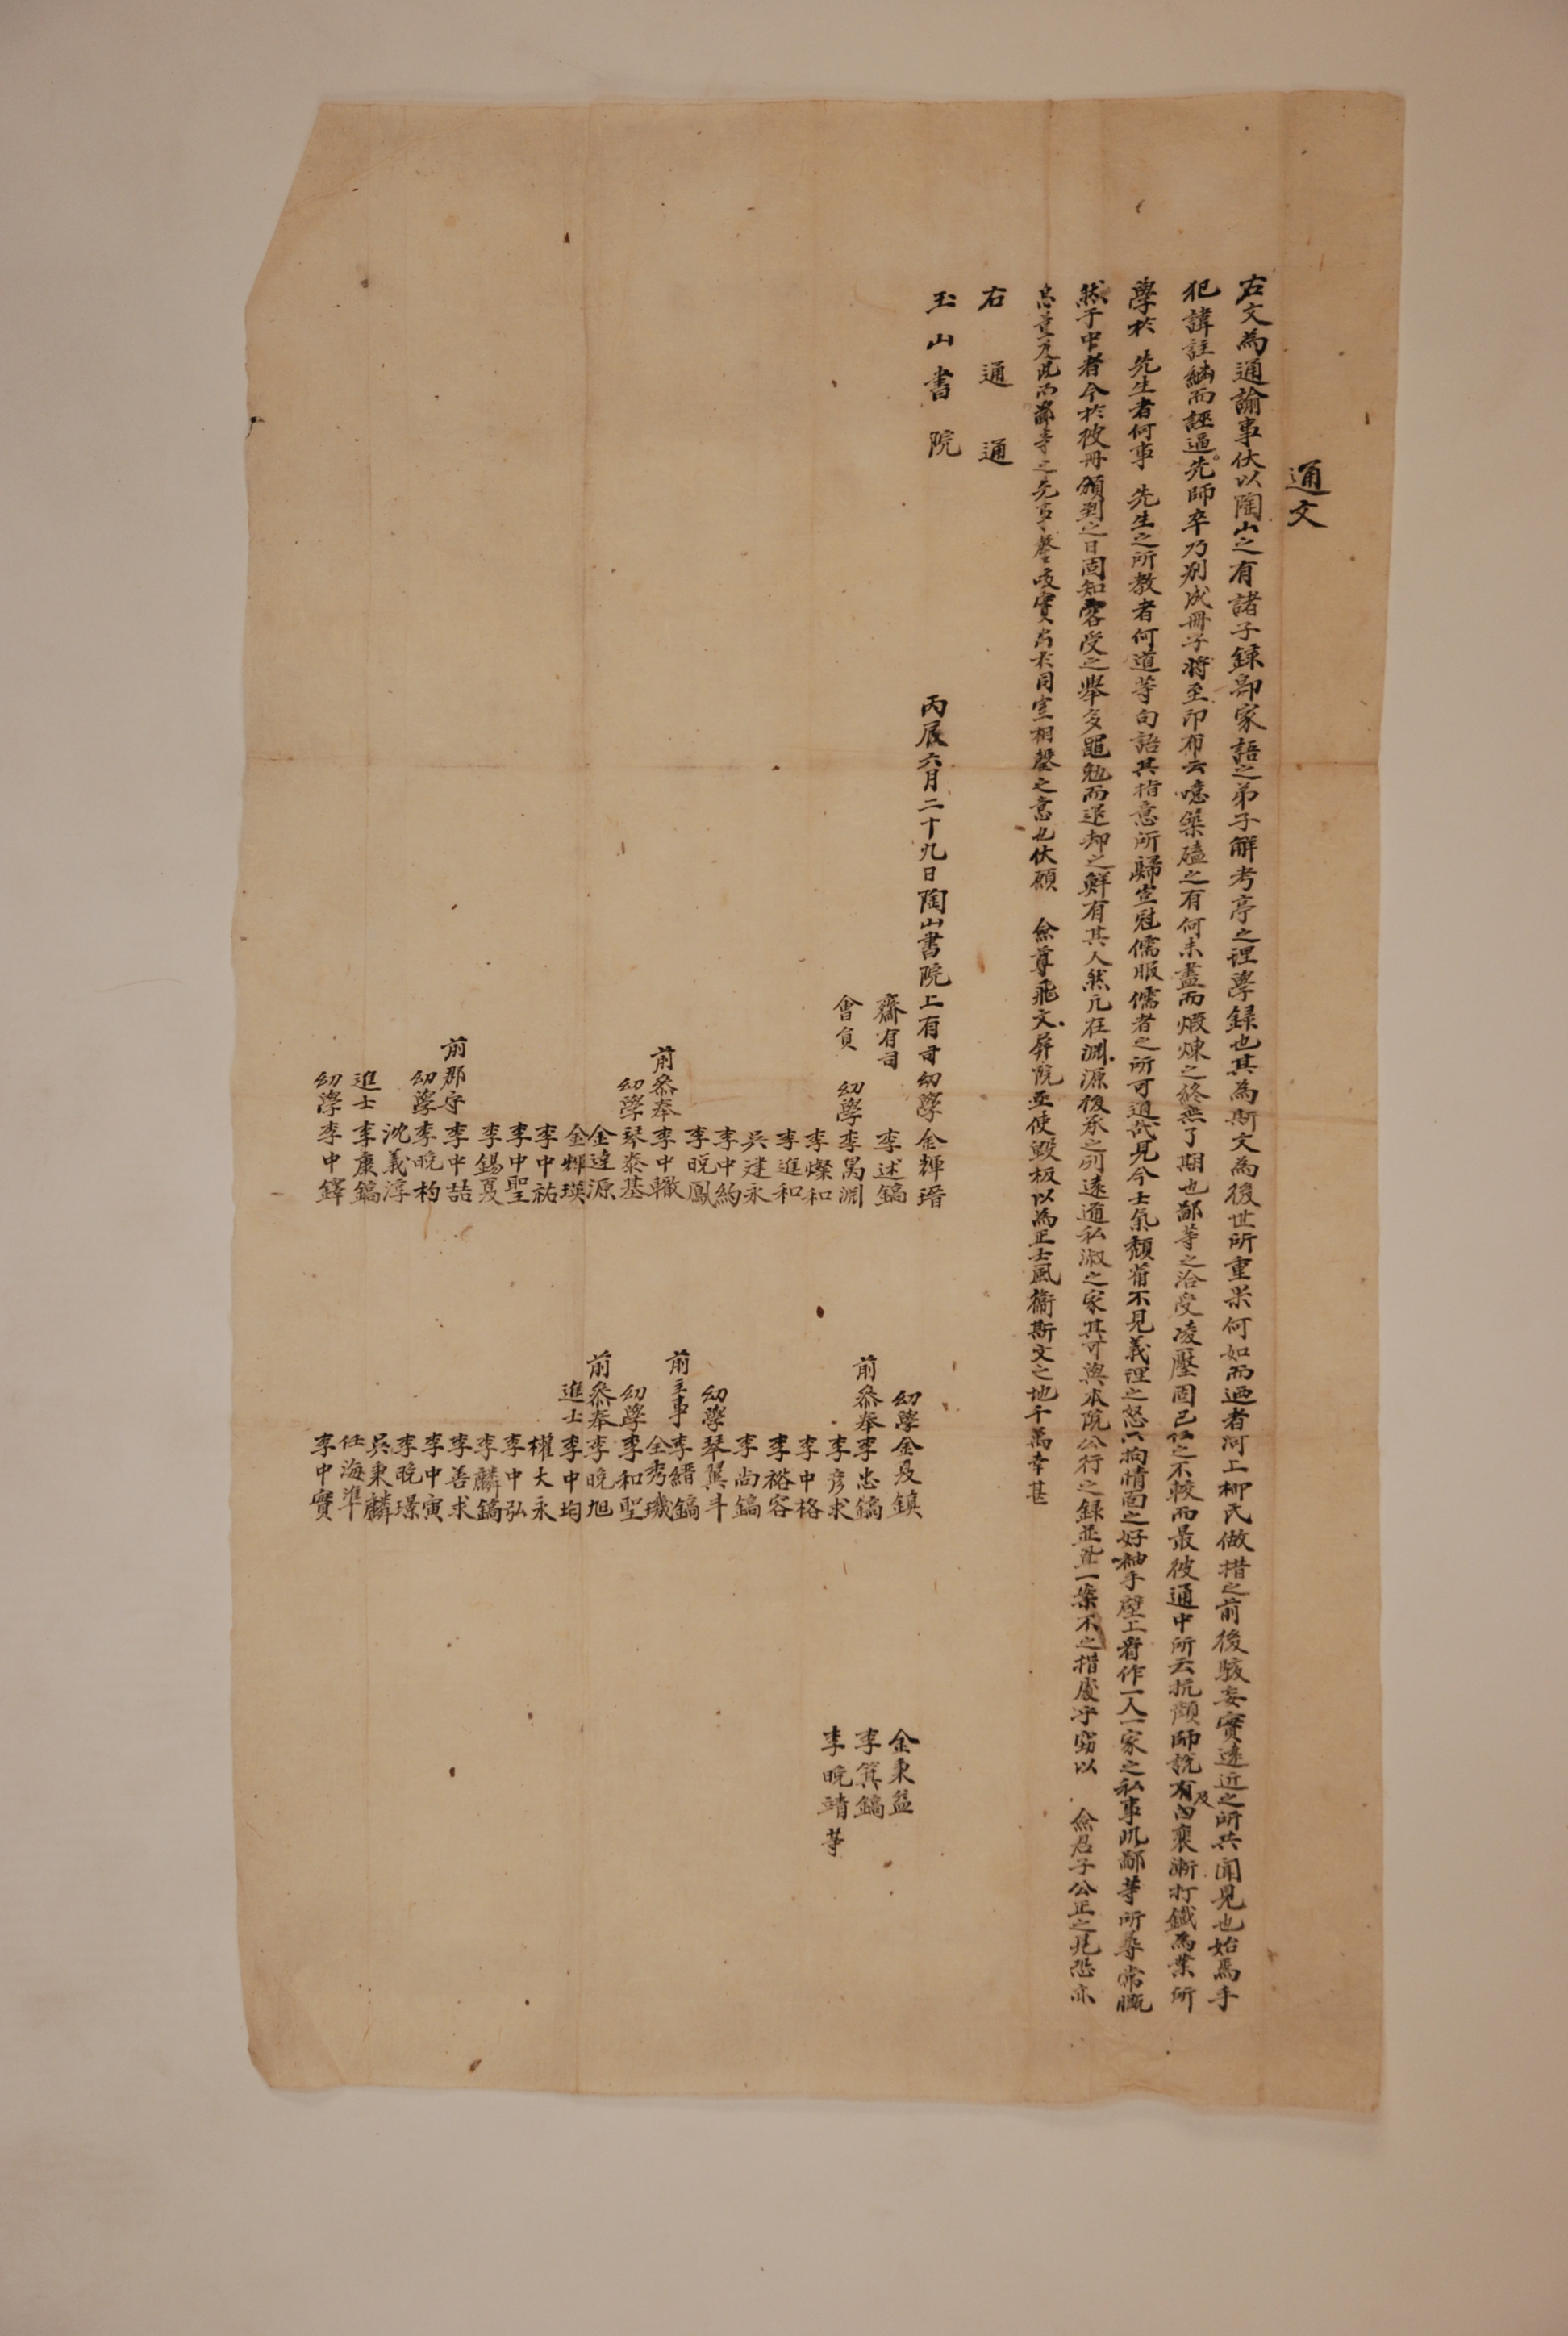 通文
右文為通諭事伏以陶山之有諸子錄卽家語之弟子解考亭之理學錄也其為斯文為後世所重果何如而迺者河上柳氏做措之前後駭妄實遠近之所共聞見也始焉手
犯諱註繡而誣逼先師卒乃別成冊子將至印布云噫築磕之有何未盡而煆煉之終無了期也鄙等之洽受凌壓固已任之不較而最彼通中所云抗顔師說有及內襄漸打鐵為業所
學於 先生者何事 先生之所教者何道等句語其指意所歸豈冠儒服儒者之所可道哉見今士氣頹菑不見義理之怒只拘情面之好袖手壁上看作一人一家之私事此鄙等所尋常慨
然于中者今於彼冊頒到之日固知容受之擧多黽勉而退却之鮮有其人然凡在淵源後承之列遠邇私淑之家其可與本院公行之錄並此一案不之措處乎窃以 僉君子公正之見恐亦
之意也伏願 僉尊飛文屛院亟使毀板以為正士風衛斯文之地千萬幸甚
右通通
玉山書院
丙辰六月二十九日陶山書院上有司幼學金輝瑨
齋有司 李述鎬
會員 幼學李禼淵
李燦和
李進和
吳建永
李中約
李晩鳳
前參奉李中轍
幼學琴泰基
金達源
金輝瑛
李中祐
李中聖
李錫夏
前郡守李中喆
幼學李晩杓
沈義淳
進士李康鎬
幼學李中鐸
幼學金夏鎭
前參奉李忠鎬
李彦求
李中格
李裕容
李尚鎬
幼學琴翼斗
前主事李縉鎬
金秀璣
幼學李和聖
前參奉李晩旭
進士李中均
權大永
李中弘
李麟鎬
李善求
李中寅
李晩璟
吳秉麟
任海準
李中實
金秉益
李箕鎬
李晩靖等